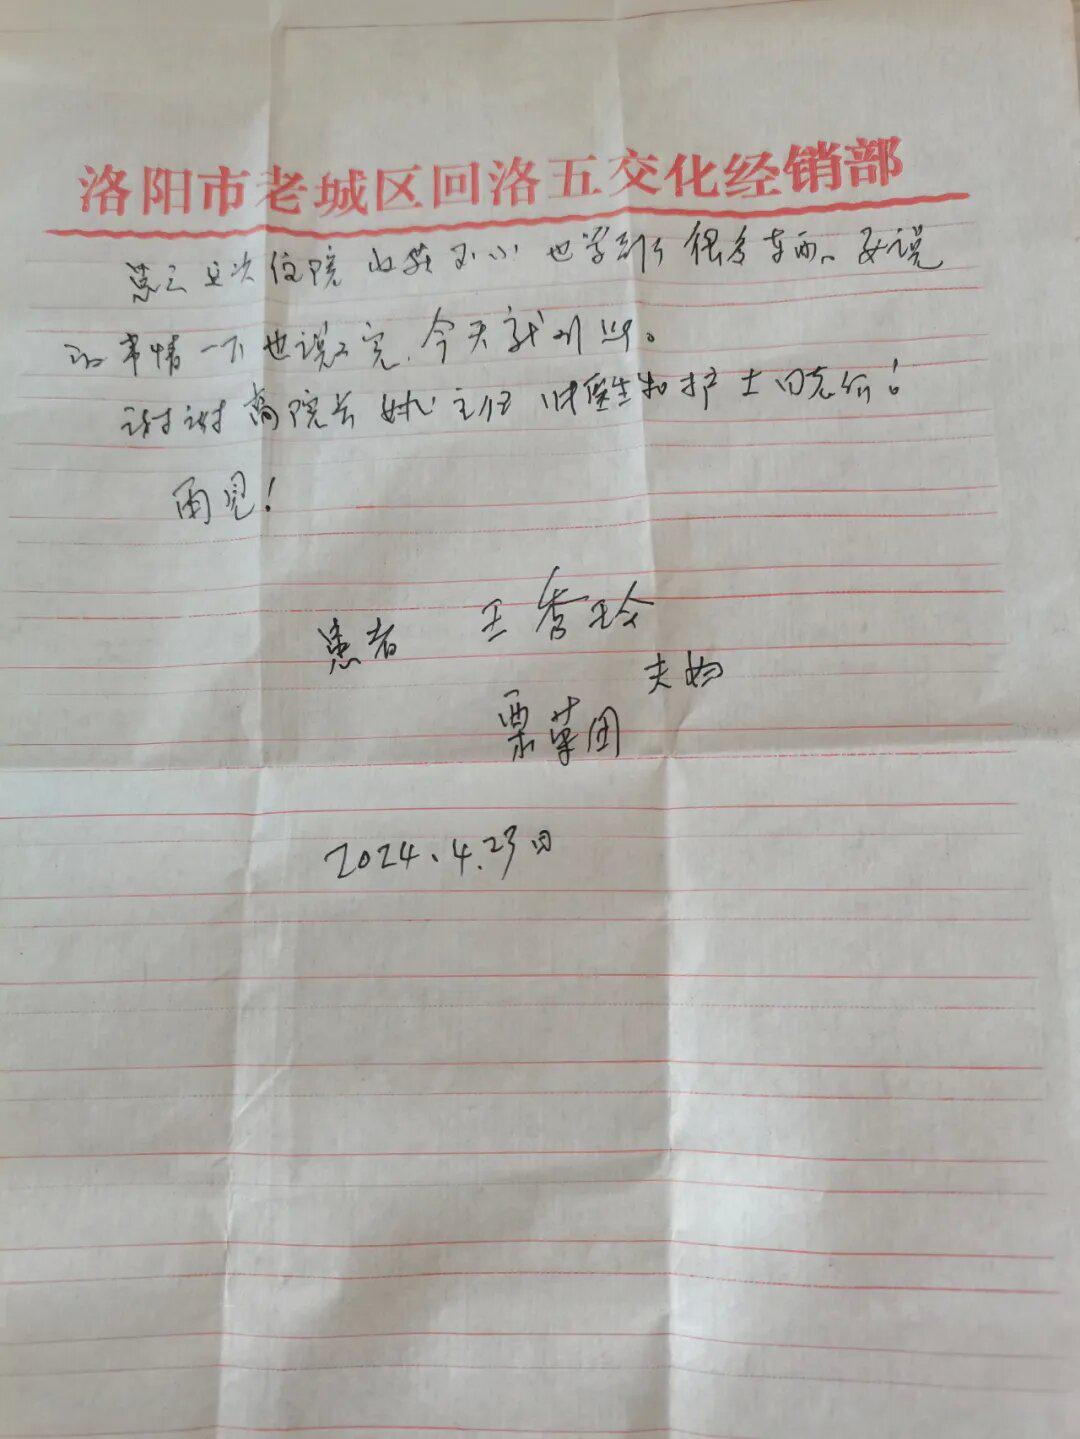 洛阳市老城区回洛五交化经销部
总之这次住院收获不小也学到了很多东西。要说
的事情一下也说不完.今天就到此。
谢谢高院长 姚主任 医生和护士同志们！
再见！
患者 王秀玲
夫妇
栗 团
2024.4.23日